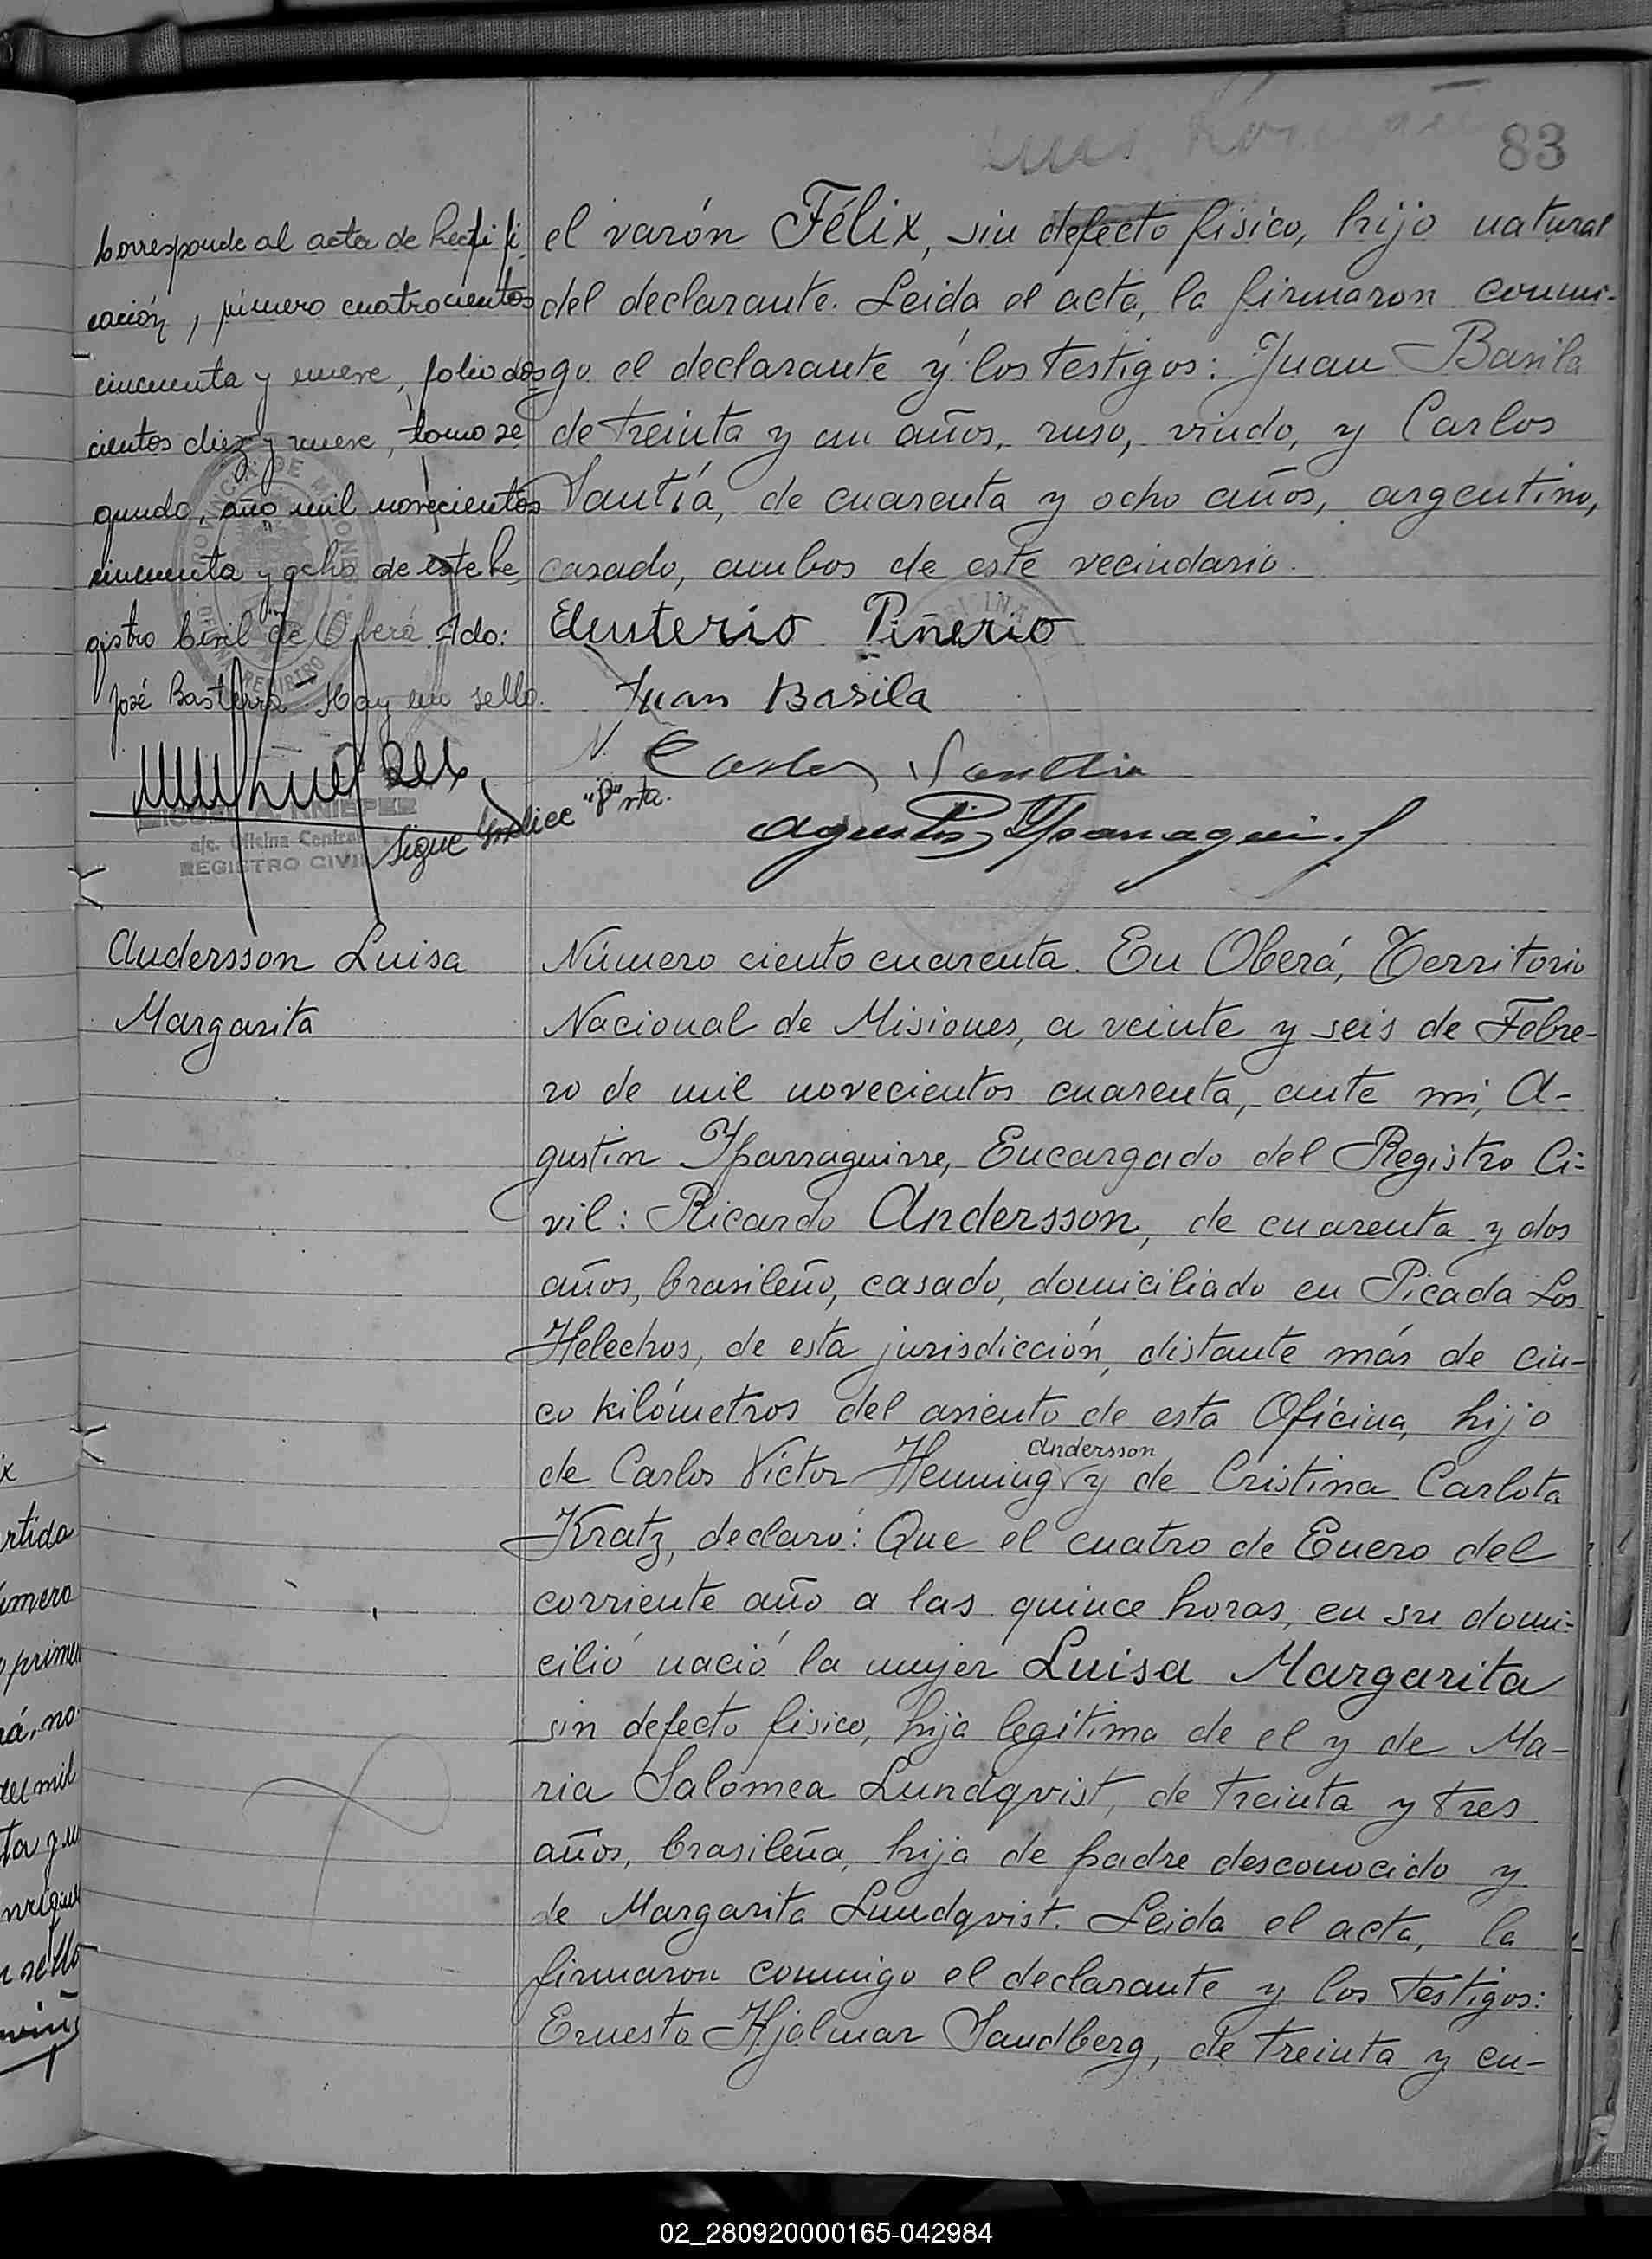 83
Corresponde al acta de Rectifi
cación, número cuatrocientos
cincuenta y nueve, folio dos
cientos diez y nueve, tomo se
gundo, año mil novecientos
cincuenta y ocho de este Re
gistro Civil de Oberá. Fdo:
José Basterra - Hay un sello.
KNIEPER
a/c. Oficina Central
REGISTRO CIVIL
Sigue Indice "P" rta.
el varón Félix, sin defecto fisico, hijo natural
del declarante. Leida el acta, la firmaron conmi-
go el declarante y los testigos: Juan Basila
de treinta y un años, ruso, viudo, y Carlos
Santía, de cuarenta y ocho años, argentino,
casado, ambos de este vecindario.
Eleuterio Piñerio
Juan Basila
Carlos Santtia
Agustin Yparraguirre
Andersson Luisa
Margarita
Número ciento cuarenta. En Oberá, Territorio
Nacional de Misiones, a veinte y seis de Febre-
ro de mil novecientos cuarenta, ante mi, A-
gustin Yparraguirre, Encargado del Registro Ci-
vil: Ricardo Andersson, de cuarenta y dos
años, brasileño, casado, domiciliado en Picada Los
Helechos, de esta jurisdicción, distante más de cin-
co kilómetros del asiento de esta Oficina, hijo
Andersson
de Carlos Victor Henning y de Cristina Carlota
Kratz, declaró: Que el cuatro de Enero del
corriente año a las quince horas, en su domi-
cilio nació la mujer Luisa Margarita
sin defecto fisico, hija legítima de el y de Ma-
ria Salomea Lundqvist, de treinta y tres
años, brasileña, hija de padre desconocido y
de Margarita Lundqvist. Leida el acta, la
firmaron conmigo el declarante y los testigos:
Ernesto Hjalmar Sandberg, de treinta y cu-
x
rtida
úmero
primer
rá, no
del mil
nrique
n sello
02_280920000165-042984